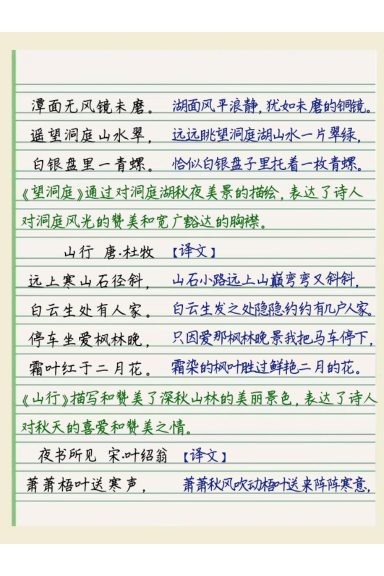 潭面无风镜未磨。 湖面风平浪静,犹如未磨的铜镜。
遥望洞庭山水翠, 远远眺望洞庭湖山水一片翠绿,
白银盘里一青螺。 恰似白银盘子里托着一枚青螺。
《望洞庭》通过对洞庭湖秋夜美景的描绘,表达了诗人
对洞庭风光的赞美和宽广豁达的胸襟。
山行 唐·杜牧 【译文】
远上寒山石径斜, 山石小路远上山巅弯弯又斜斜,
白云生处有人家。 白云生发之处隐隐约约有几户人家。
停车坐爱枫林晚, 只因爱那枫林晚景我把马车停下,
霜叶红于二月花。 霜染的枫叶胜过鲜艳二月的花。
《山行》描写和赞美了深秋山林的美丽景色,表达了诗人
对秋天的喜爱和赞美之情。
夜书所见 宋·叶绍翁 【译文】
萧萧梧叶送寒声, 萧萧秋风吹动梧叶送来阵阵寒意,